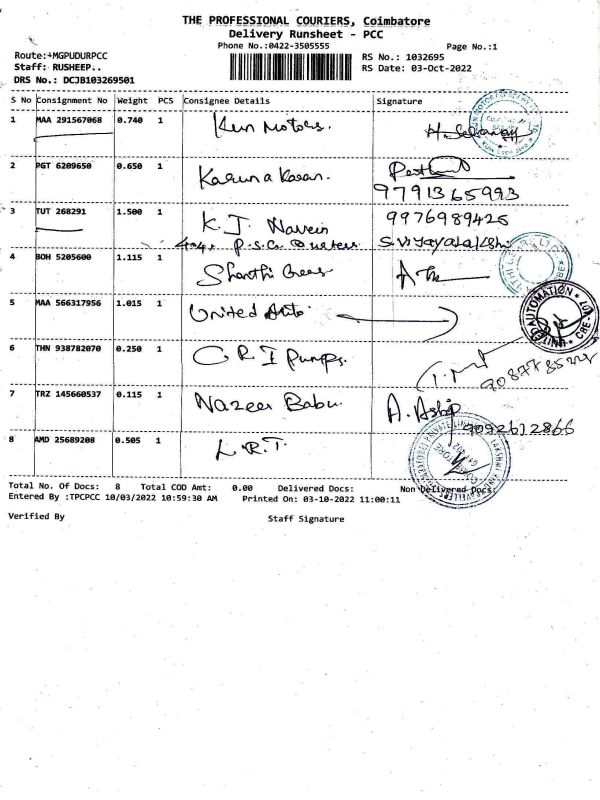 THE PROFESSIONAL COURIERS, Coimbatore
Delivery Runsheet - PCC
Phone No.:0422-3505555
Page No.:1
Route:+MGPUDURPCC
Staff: RUSHEEP..
DRS No.: DCJB103269501
RS No.: 1032695
RS Date: 03-Oct-2022
S No Consignment No Weight PCS Consignee Details Signature
1 MAA 291567068 0.740 1 Ken Motors.
2 PGT 6209650 0.650 1 Karuna Karan.
9791365993
3 TUT 268291 1.500 1 K. J. Navein 9976989425
404, P.S.G. Quarters S. Vijayalakshmi
4 BOH 5205600 1.115 1 Shanthi Gears
5 MAA 566317956 1.015 1 United Auto
AUTOMATION
UNITED
CBE
6 THN 938782070 0.250 1 C R I Pumps.
7 TRZ 145660537 0.115 1 Nazeer Babu A. Ashif
9092612866
8 AMD 25689208 0.505 1 L.R.T.
Total No. Of Docs: 8 Total COD Amt: 0.00 Delivered Docs: Non Delivered Docs:
Entered By :TPCPCC 10/03/2022 10:59:30 AM Printed On: 03-10-2022 11:00:11
Verified By Staff Signature